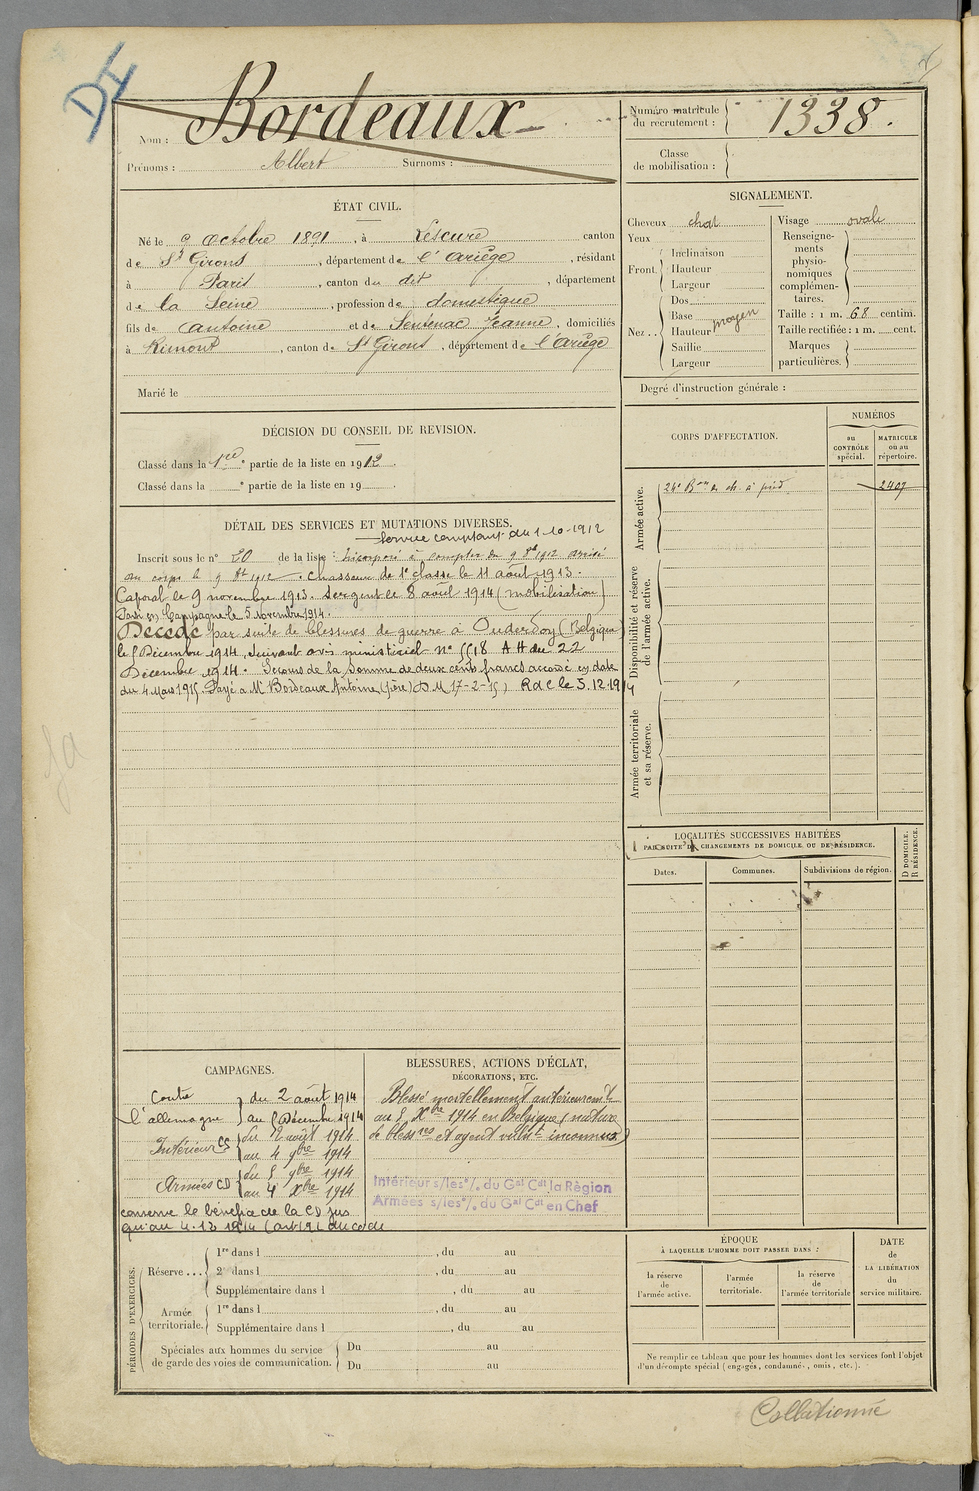 DI
Nom : Bordeaux
Prénoms : Albert Surnoms :
Numéro matricule
du recrutement : 1338.
Classe
de mobilisation :
ÉTAT CIVIL.
Né le 9 Octobre 1891, à Lescure canton
de St Girons, département de l'Ariège, résidant
à Paris, canton du dit, département
de la Seine, profession de domestique
fils de Antoine et de Sentenac Jeanne, domiciliés
à Rimont, canton de St Girons, département de l'Ariège
Marié le
SIGNALEMENT.
Cheveux chat
Yeux
Front.
Inclinaison
Hauteur
Largeur
Nez..
Dos
Base
Hauteur moyen
Saillie
Largeur
Visage ovale
Renseigne-
ments
physio-
nomiques
complémen-
taires.
Taille : 1 m. 68 centim.
Taille rectifiée : 1 m. cent.
Marques
particulières.
Degré d'instruction générale :
DÉCISION DU CONSEIL DE REVISION.
Classé dans la 1re partie de la liste en 1912.
Classé dans la ° partie de la liste en 19 .
CORPS D'AFFECTATION.
NUMÉROS
au
CONTRÔLE
spécial.
MATRICULE
ou au
répertoire.
Armée active.
24e Bon de ch. à pied 2407
Disponibilité et réserve
de l'armée active.
Armée territoriale
et sa réserve.
DÉTAIL DES SERVICES ET MUTATIONS DIVERSES.
Service comptant du 1-10-1912
Inscrit sous le n° 20 de la liste : Incorporé à compter du 9 8bre 1912 arrivé
au corps le 9 8bre 1912. Chasseur de 1e classe le 11 août 1913.
Caporal le 9 novembre 1913. Sergent le 8 août 1914 (mobilisation)
Parti en Campagne le 5 Novembre 1914.
Décédé par suite de blessures de guerre à Ouderdon (Belgique)
le 5 Décembre 1914, suivant avis ministériel n° 5518 AH du 22
Décembre 1914. Secours de la Somme de deux cents francs accordé en date
du 4 Mars 1915. Payé à Mr Bordeaux Antoine (père) D.M 17-2-15) R d C le 5.12.1914
LOCALITÉS SUCCESSIVES HABITÉES
PAR SUITE DE CHANGEMENTS DE DOMICILE OU DE RÉSIDENCE.
Dates.
Communes.
Subdivisions de région.
D DOMICILE.
R RÉSIDENCE.
CAMPAGNES.
Contre l'allemagne du 2 août 1914
au 5 Décembre 1914
Intérieur CS du 2 août 1914
au 4 9bre 1914
Armées CD du 5 9bre 1914
au 4 Xbre 1914
conserve le bénéfice de la CD jus
qu'au 4.12 1914
BLESSURES, ACTIONS D'ÉCLAT,
DÉCORATIONS, ETC.
Blessé mortellement antérieuremt
au 5 Xbre 1914 en Belgique (nature
de blessres et agent vulnt inconnus)
Intérieur s/les°/. du Gal Cdt la Région
Armées s/les°/. du Gal Cdt en Chef
PÉRIODES D'EXERCICES.
Réserve ...
1re dans l , du au
2e dans l , du au
Supplémentaire dans l , du au
Armée
territoriale.
1re dans l , du au
Supplémentaire dans l , du au
Spéciales aux hommes du service
de garde des voies de communication.
Du au
Du au
ÉPOQUE
À LAQUELLE L'HOMME DOIT PASSER DANS :
la réserve
de
l'armée active.
l'armée
territoriale.
la réserve
de
l'armée territoriale
DATE
de
LA LIBÉRATION
du
service militaire.
Ne remplir ce tableau que pour les hommes dont les services font l'objet
d'un décompte spécial (engagés, condamnés, omis, etc.).
Collationné